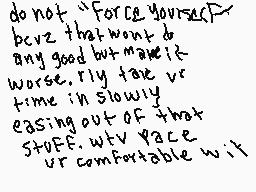 do not "force yourself
bcvz that wont do
any good but make it
worse. rly take ur
time in slowly
easing out of that
stuff. wtv pace
ur comfortable wit